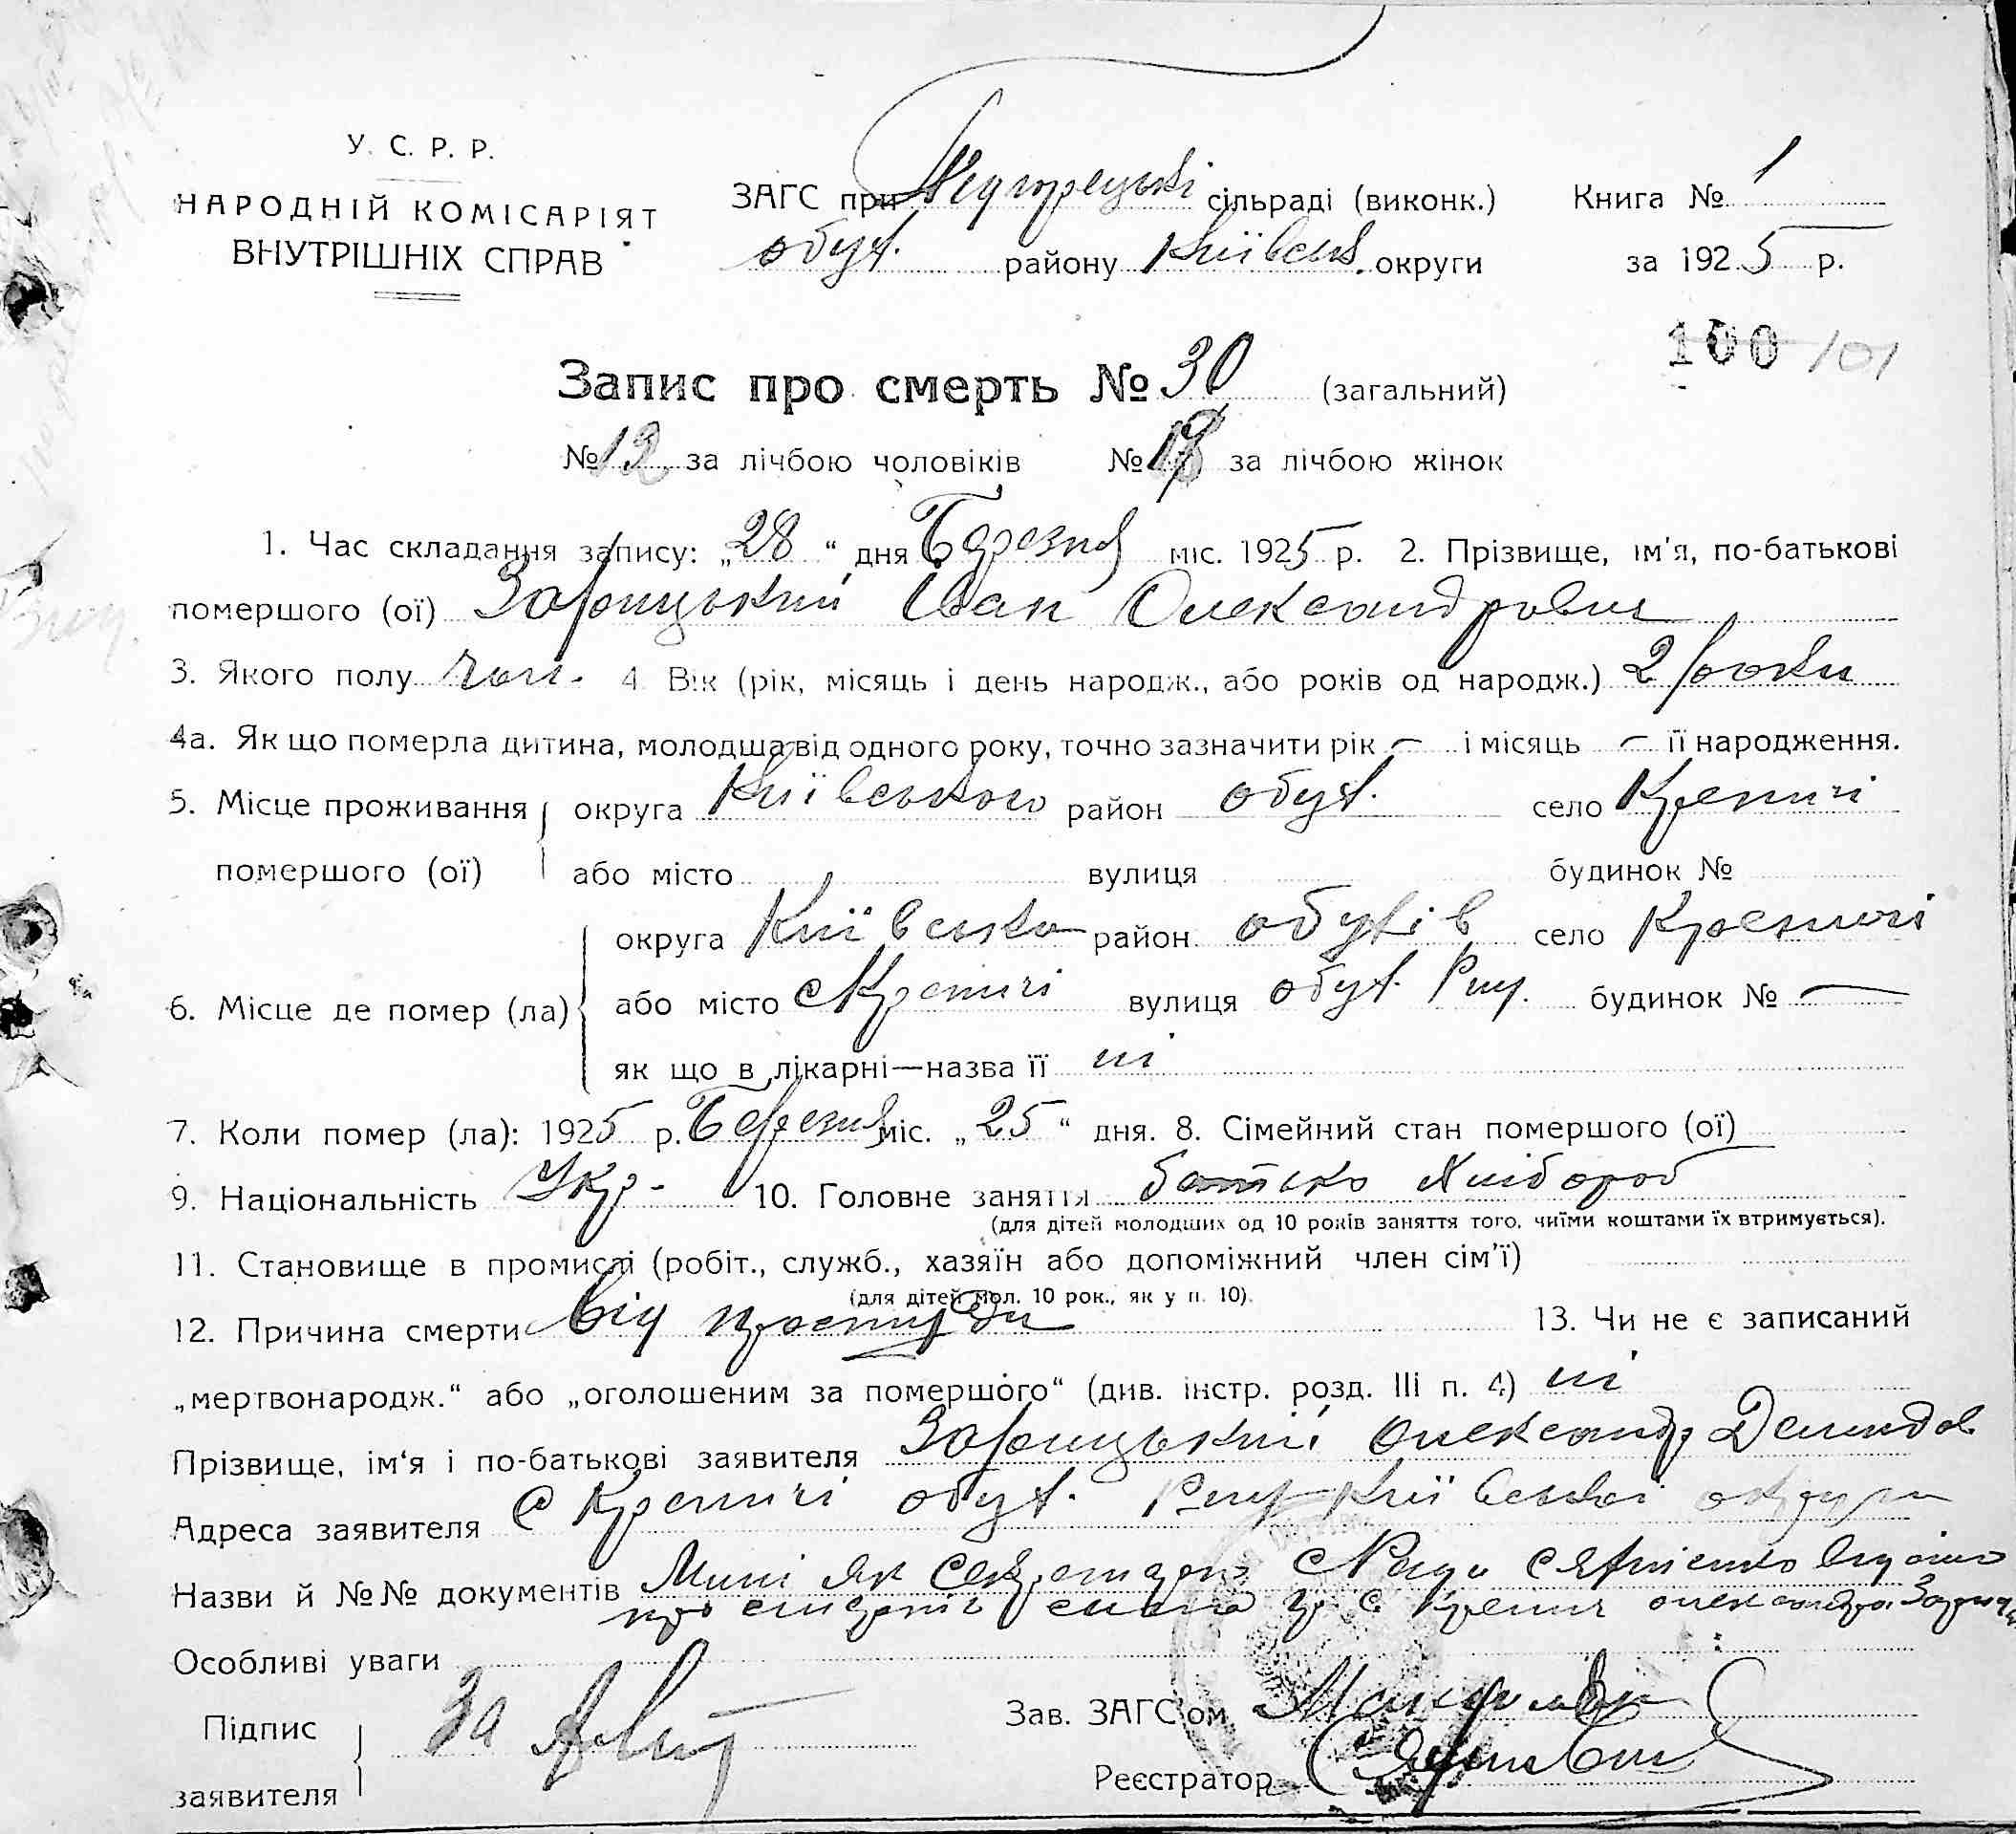 У. С. Р. Р.
НАРОДНІЙ КОМІСАРІЯТ
ВНУТРІШНІХ СПРАВ
ЗАГС при Підгорецькі сільраді (виконк.) Книга № 1
обух. району Київськ. округи за 1925 р.
100 101
Запис про смерть № 30 (загальний)
№ 12 за лічбою чоловіків № 18 за лічбою жінок
1. Час складання запису: „28“ дня Березня міс. 1925 р. 2. Прізвище, ім'я, по-батькові
помершого (ої) Зарицький Іван Олександрович
3. Якого полу чол. 4. Вік (рік, місяць і день народж., або років од народж.) 2 роки
4а. Як що померла дитина, молодша від одного року, точно зазначити рік — і місяць — її народження.
5. Місце проживання округа Київського район обух. село Креничі
помершого (ої) або місто вулиця будинок №
округа Київська район обухів село Креничі
6. Місце де помер (ла) або місто с Креничі вулиця обух. Рну. будинок № —
як що в лікарні—назва її ні
7. Коли помер (ла): 1925 р. Березня міс. „25“ дня. 8. Сімейний стан помершого (ої)
9. Національність Укр- 10. Головне заняття батько Хлібороб
(для дітей молодших од 10 років заняття того, чиїми коштами їх втримується).
11. Становище в промислі (робіт., служб., хазяїн або допоміжний член сім'ї)
(для дітей мол. 10 рок., як у п. 10).
12. Причина смерти від простуди 13. Чи не є записаний
„мертвонародж.“ або „оголошеним за помершого“ (див. інстр. розд. III п. 4) ні
Прізвище, ім'я і по-батькові заявителя Зарицький Олександр Демидов
Адреса заявителя с Креничі обух. Рну Київської округи
Назви й №№ документів Мині як Секретарю с Ради відомо
про смерть сина гр с Кренич олександра
Особливі уваги
Підпис
заявителя
За
Зав. ЗАГС'ом
Реєстратор